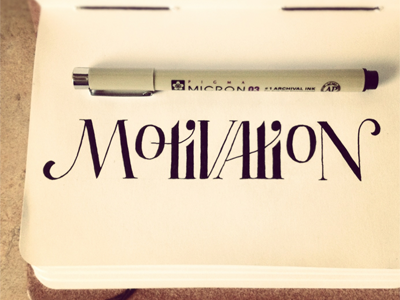 PIGMA
MICRON 03 #1 ARCHIVAL INK
MOTIVATION